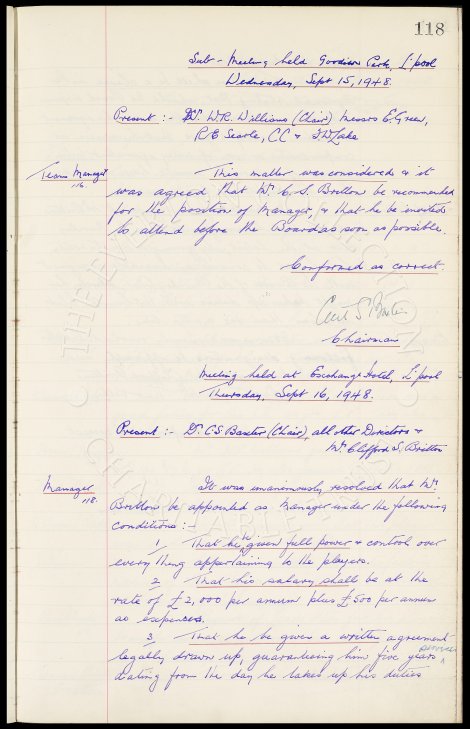 118
Sub - Meeting held Goodison Park, L'pool
Wednesday, Sept 15, 1948.
Present :- Dr. W.R. Williams (Chair) Messrs E. Green,
R.E. Searle, C.C. &
Team Manager
116.
This matter was considered & it
was agreed that Mr. C. S. Britton be recommended
for the position of Manager, & that he be invited
to attend before the Board as soon as possible.
Confirmed as correct.
Cecil S Baxter
Chairman
Meeting held at Exchange Hotel, L'pool
Thursday, Sept 16, 1948.
Present :- Dr. C.S. Baxter (Chair), all other Directors &
Mr. Clifford S. Britton
Manager
118.
It was unanimously resolved that Mr.
Britton be appointed as Manager under the following
conditions :-
1. That he ^ given full power & control over
every thing appertaining to the players.
2. That his salary shall be at the
rate of £2,000 per annum plus £500 per annum
as expenses.
3. That he be given a written agreement
legally drawn up, guaranteeing him five years ^ service
dating from the day he takes up his duties
THE EVERTON COLLECTION
CHARITABLE TRUST